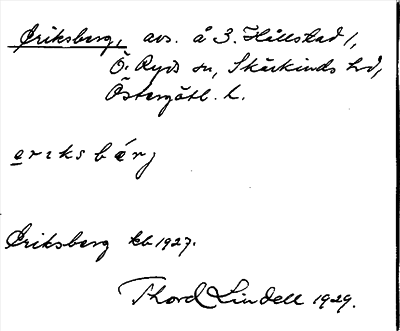 Eriksberg, avs. å 3. Hällstad 1,
Ö. Ryds sn, Skärkinds hd,
Östergötl. l.
eriksbérj
Eriksberg kb 1927.
Thord Lindell 1929.